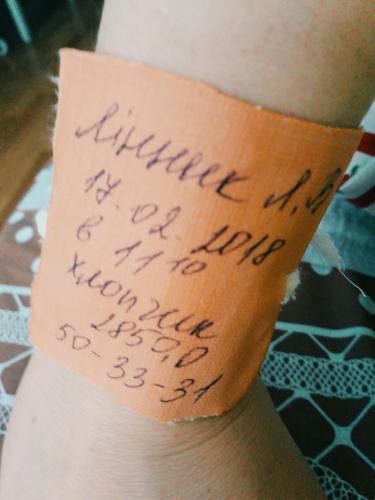 Лінник Л.В
17.02.2018
в 11 10
хлопчик
2850,0
50-33-31